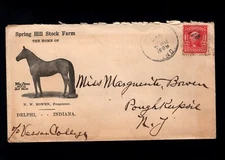 Spring Hill Stock Farm
THE HOME OF
Miss Marguerite Bowen
Poughkupsie
N. Y.
N. W. BOWEN, Proprietor.
DELPHI, - INDIANA.
c/o Vassar College